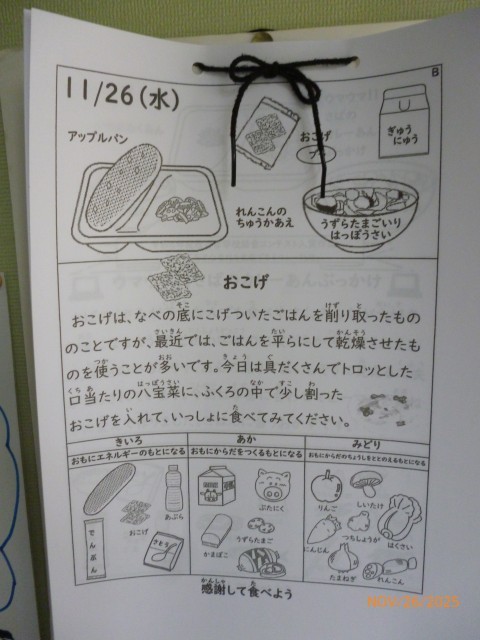 B
11/26(水)
アップルパン
おこげ
ぎゅう
にゅう
れんこんの
ちゅうかあえ
うずらたまごいり
はっぽうさい
おこげ
おこげは、なべの底にこげついたごはんを削り取ったもの
のことですが、最近では、ごはんを平らにして乾燥させたも
のを使うことが多いです。今日は具だくさんでトロッとした
口当たりの八宝菜に、ふくろの中で少し割った
おこげを入れて、いっしょに食べてみてください。
きいろ
おもにエネルギーのもとになる
おこげ
あぶら
でんぷん
さとう
あか
おもにからだをつくるもとになる
ぶたにく
うずらたまご
かまぼこ
みどり
おもにからだのちょうしをととのえるもとになる
りんご
しいたけ
にんじん
つちしょうが
はくさい
たまねぎ
れんこん
感謝して食べよう